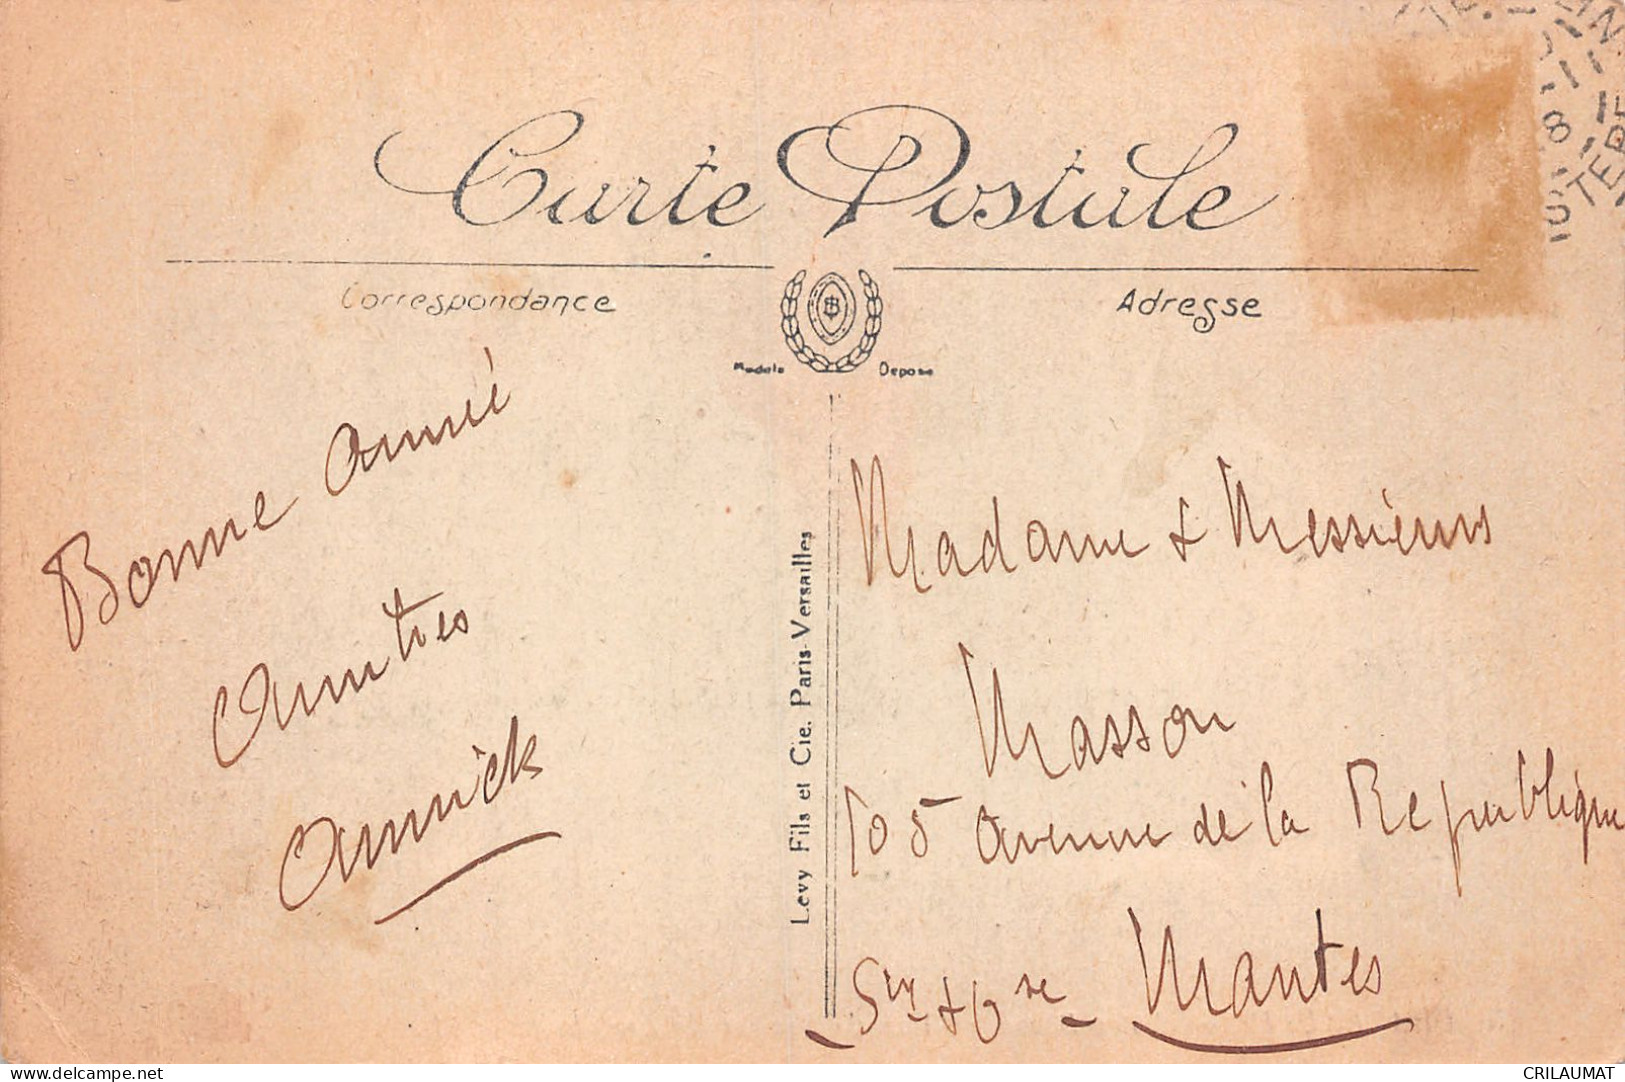 Carte Postale
Correspondance
Adresse
Modele Depose
Bonne année
Amitiés
Annick
Levy Fils et Cie. Paris-Versailles
Madame & Messieurs
Masson
105 Avenue de la Republique
Mantes
S. & O.
CRILAUMAT